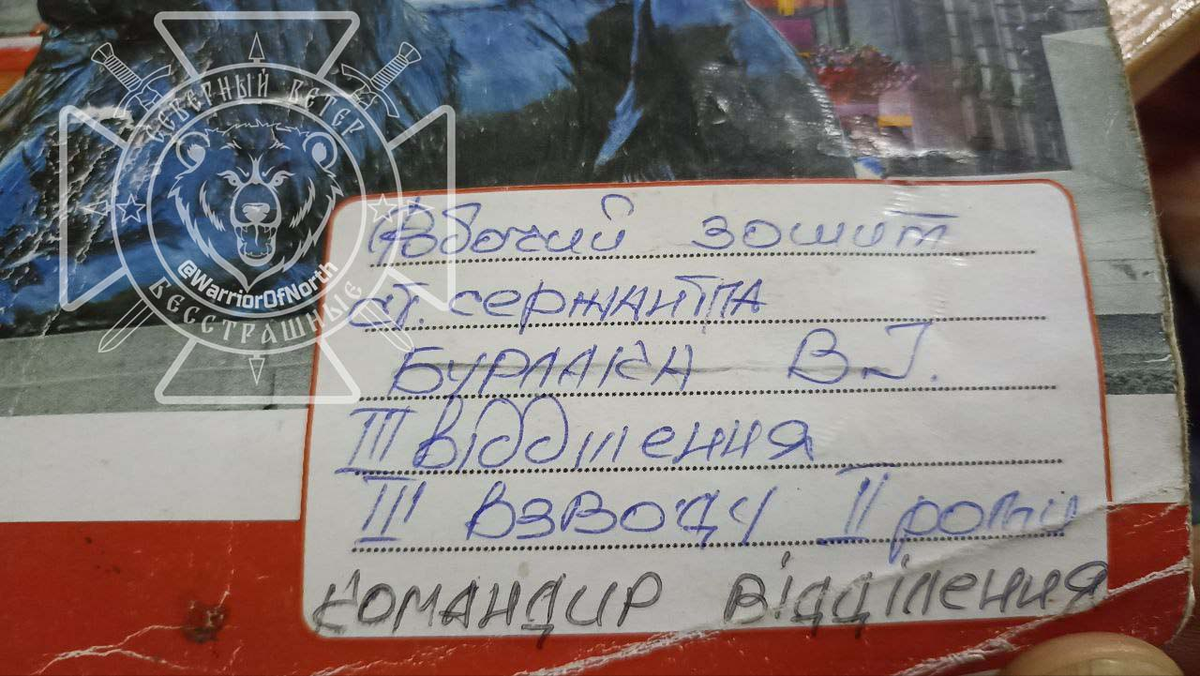 СЕВЕРНЫЙ ВЕТЕР
@WarriorOfNorth
БЕССТРАШНЫЕ
Робочий зошит
ст. сержанта
БУРЛАКА В.І.
III відділення
III взводу II роты
Командир відділення